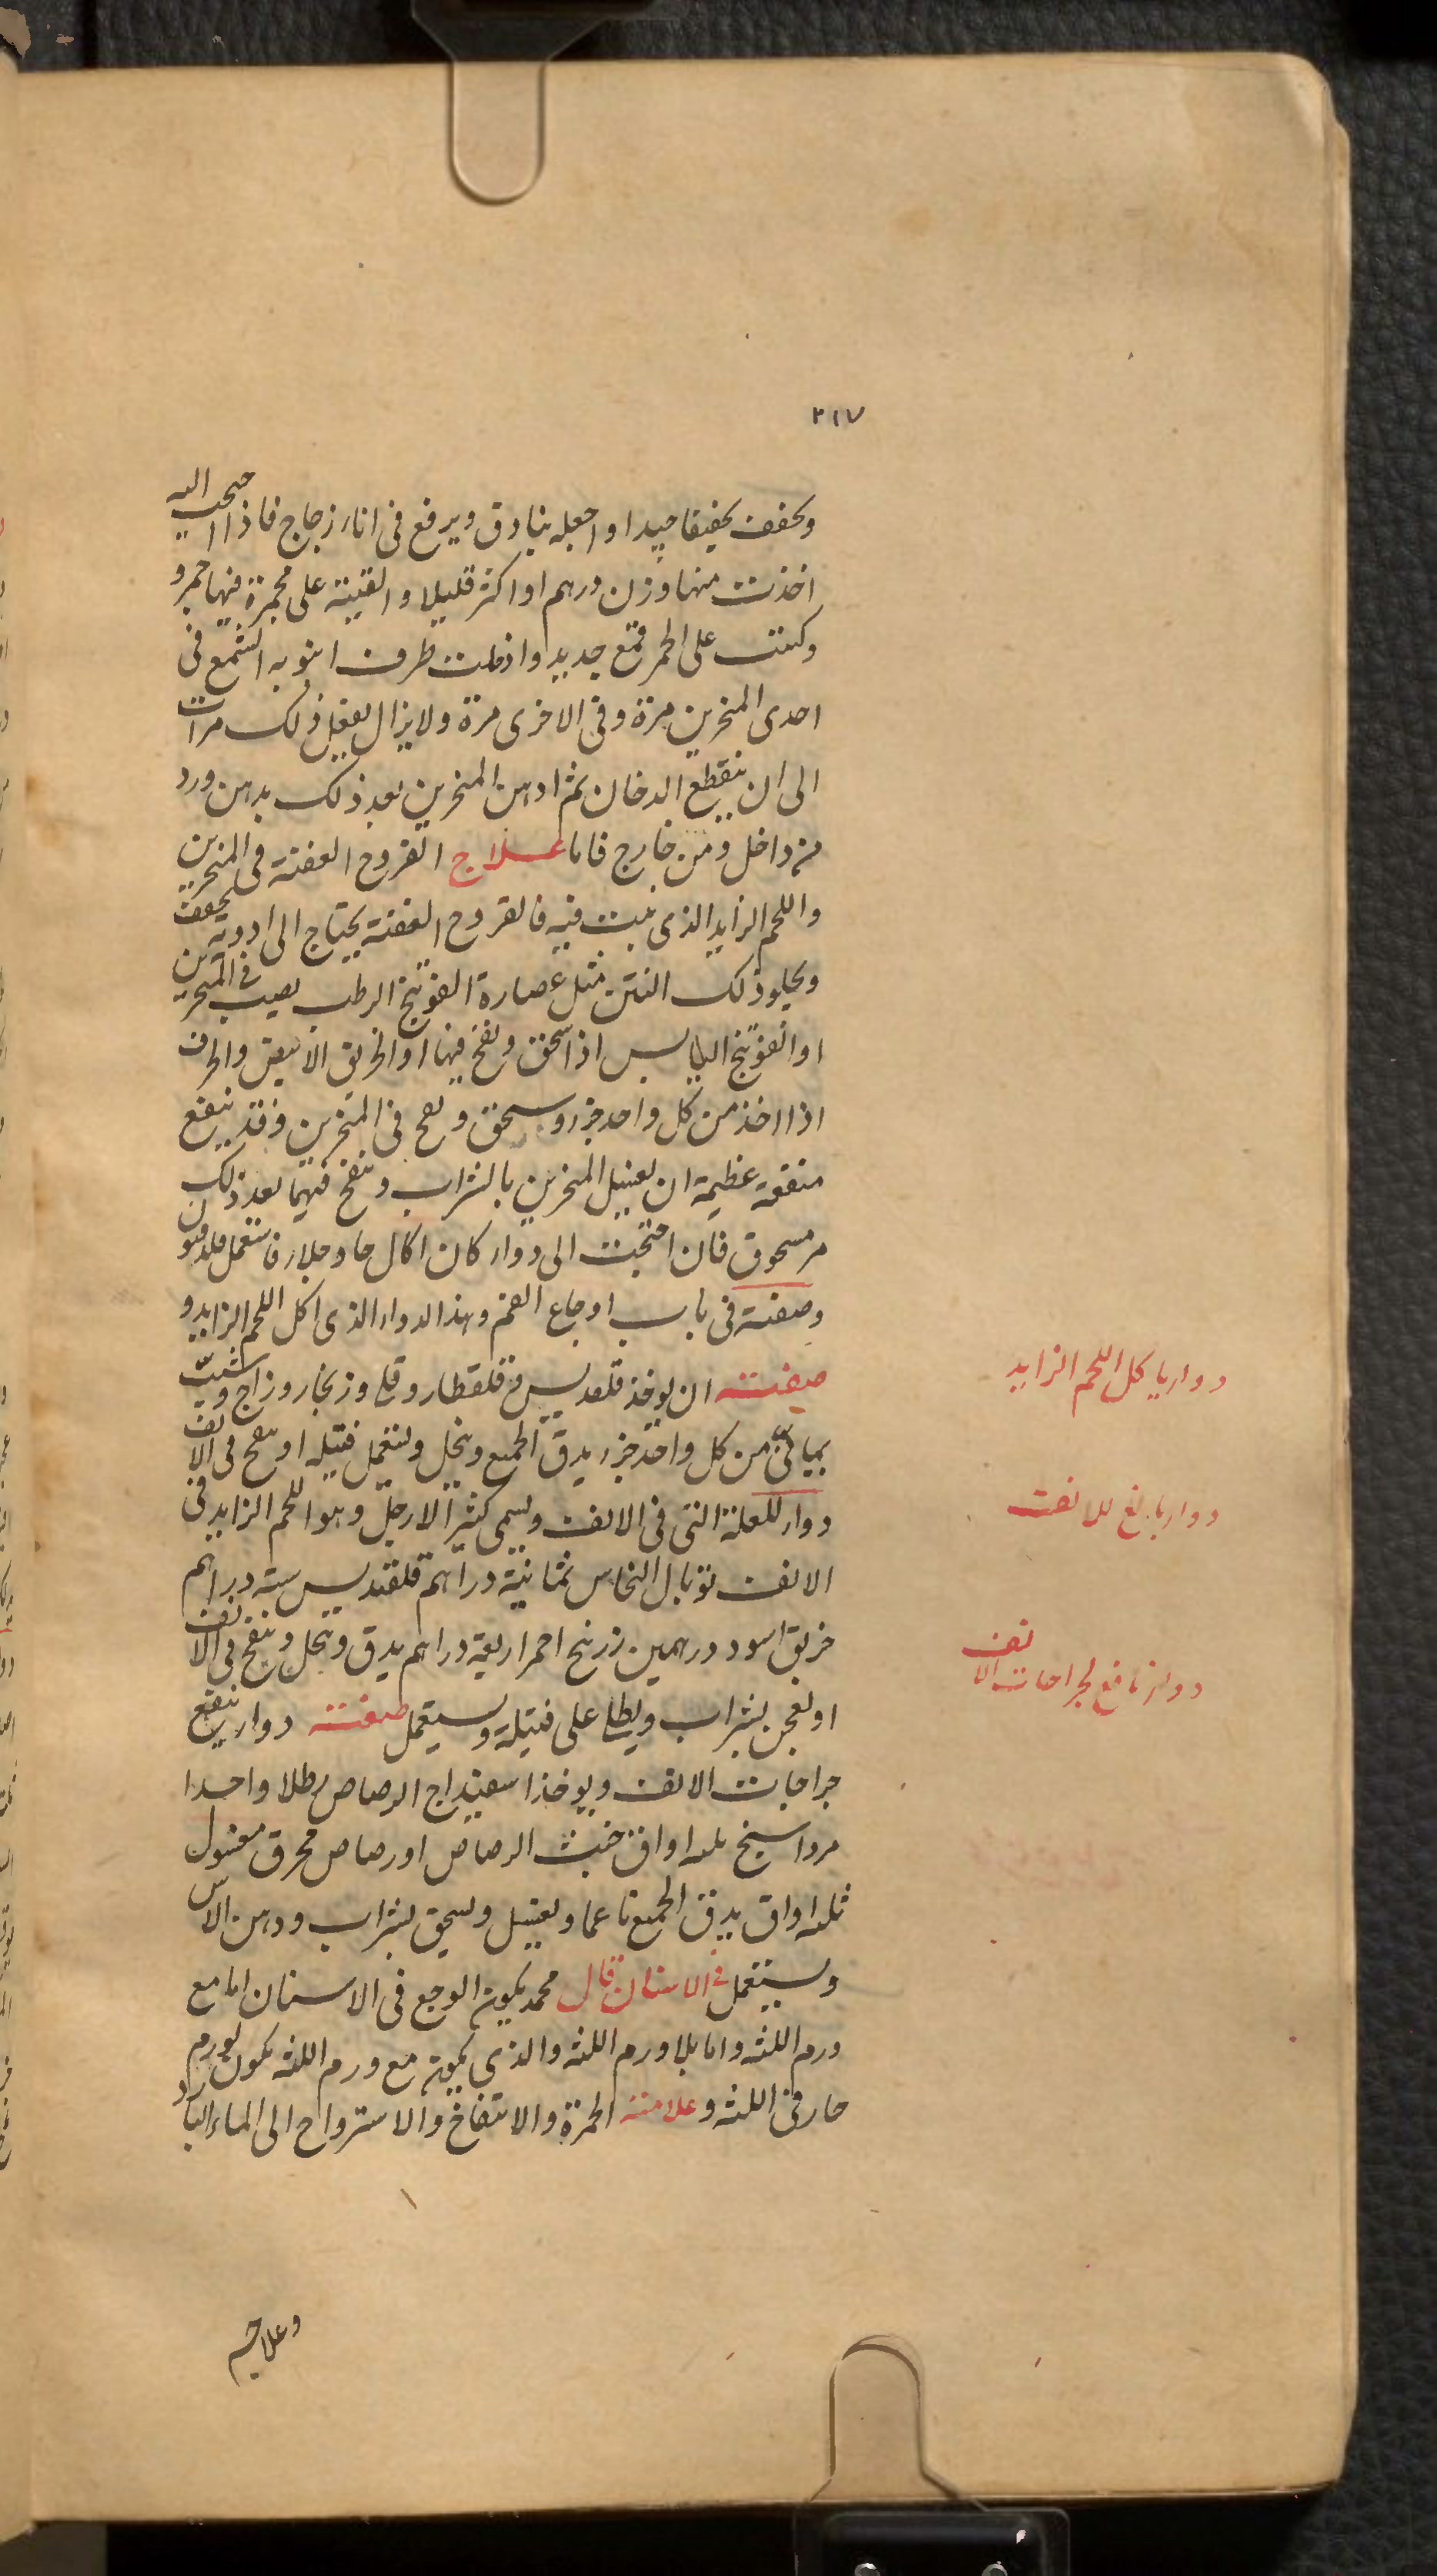 ٢١٧
ويجفف تجفيفا جيدا واجعله بنادق ويرفع فى اناء زجاج فاذا احتجت اليه
اخذت منها وزن درهم او اكثر قليلا والقيته على مجمرة فيها جمر و
وكببت على الجمر قمع جديد وادخلت طرف انبوبه القمع فى
احدى المنخرين مرة وفى الاخرى مرة ولا يزال يفعل ذلك مرات
الى ان ينقطع الدخان ثم ادهن المنخرين بعد ذلك بدهن ورد
من داخل ومن خارج فاما علاج القروح العفنة فى المنخرين
واللحم الزايد الذى ينبت فيه فالقروح العفنة يحتاج الى ادوية يجفف
ويجلو ذلك النتن مثل عصارة الفوتنج الرطب يصب فى المنخرين
او الفوتنج اليابس اذا سحق ونفخ فيها او الخربق الابيض والحرف
اذا اخذ من كل واحد جزء وسحق ونفخ فى المنخرين وقد ينفع
منفعة عظيمة ان يغسل المنخرين بالشراب وينفخ فيهما بعد ذلك
مر مسحوق فان احتجت الى دواء كان اكال حاد جلاء فاستعمل
وصفته فى باب اوجاع الفم وهذا الدواء الذى اكل اللحم الزايد و
صفته ان يوخذ قلقديس وقلقطار وقلى وزنجار وزاج وشب
يمانى من كل واحد جزء يدق الجميع وينخل ويستعمل فتيله او ينفخ فى الانف
دواء للعلة التى فى الانف ويسمى كثير الارجل وهو اللحم الزايد فى
الانف توبال النحاس ثمانية دراهم قلقديس ستة دراهم
خربق اسود درهمين زرنيخ احمر اربعة دراهم يدق وينخل وينفخ فى الانف
او يعجن بشراب ويطلى على فتيلة ويستعمل صفته دواء ينفع
جراحات الانف ويوخذ اسفيداج الرصاص رطلا واحدا
مرداسنج ثلثه اواق خبث الرصاص او رصاص محرق مغسول
ثلثه اواق يدق الجميع ناعما ويغسل ويسحق بشراب ودهن الاس
ويستعمل فى الاسنان قال محمد يكون الوجع فى الاسنان اما مع
ورم اللثه واما بلا ورم اللثه والذى يكون مع ورم اللثه يكون لورم
حار فى اللثه وعلامته الحمرة والانتفاخ والاسترواح الى الماء البارد
وعلاجه
دواء ياكل اللحم الزايد
دواء بالغ للانف
دواء نافع لجراحات الانف